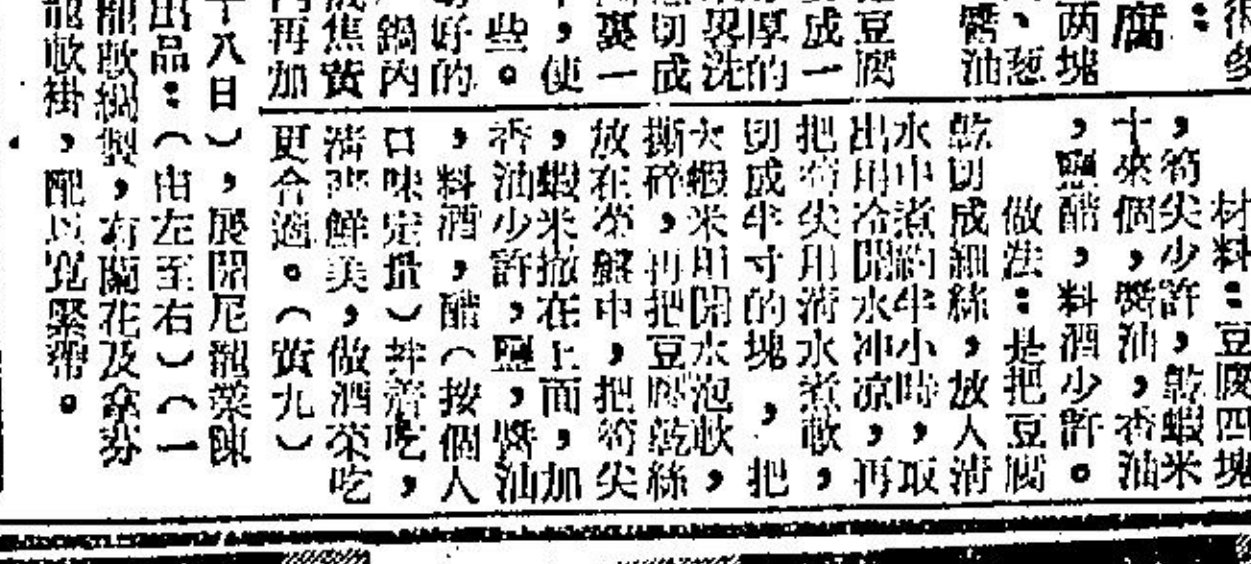 腐：
两塊
、葱
醬油
豆腐
成一
厚的
切成
裏一
，使
些。
好的
鍋內
焦黄
再加
材料：豆腐四塊
，筍尖少許，乾蝦米
十來個，醬油，香油
，鹽醋，料酒少許。
做法：是把豆腐
乾切成細絲，放入清
水中煮約半小時，取
出用冷開水冲凉，再
把筍尖用清水煮軟，
切成半寸的塊，把
大蝦米用開水泡軟，
撕碎，再把豆腐乾絲
放在菜盤中，把筍尖
，蝦米撒在上面，加
香油少許，鹽，醬油
，料酒，醋（按個人
口味定量）拌着吃，
清爽鮮美，做酒菜吃
更合適。（黄九）
十八日），展開尼龍業陳
出品：（由左至右）（一
製，有蘭花及
褂，配以寬緊帶。